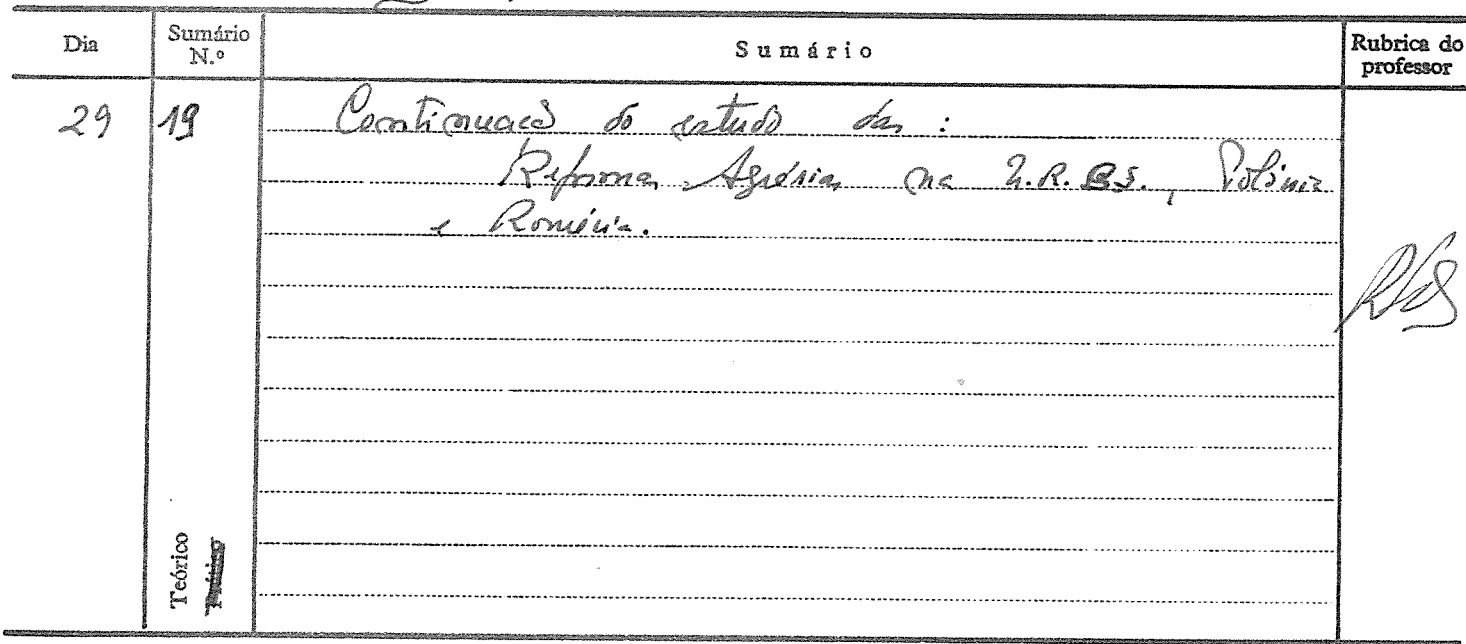 Dia Sumário N.º Sumário Rubrica do professor
29 19 Continuação do estudo das :
Reformas Agrárias na U.R.S.S., Polónia
e Roménia.
Teórico